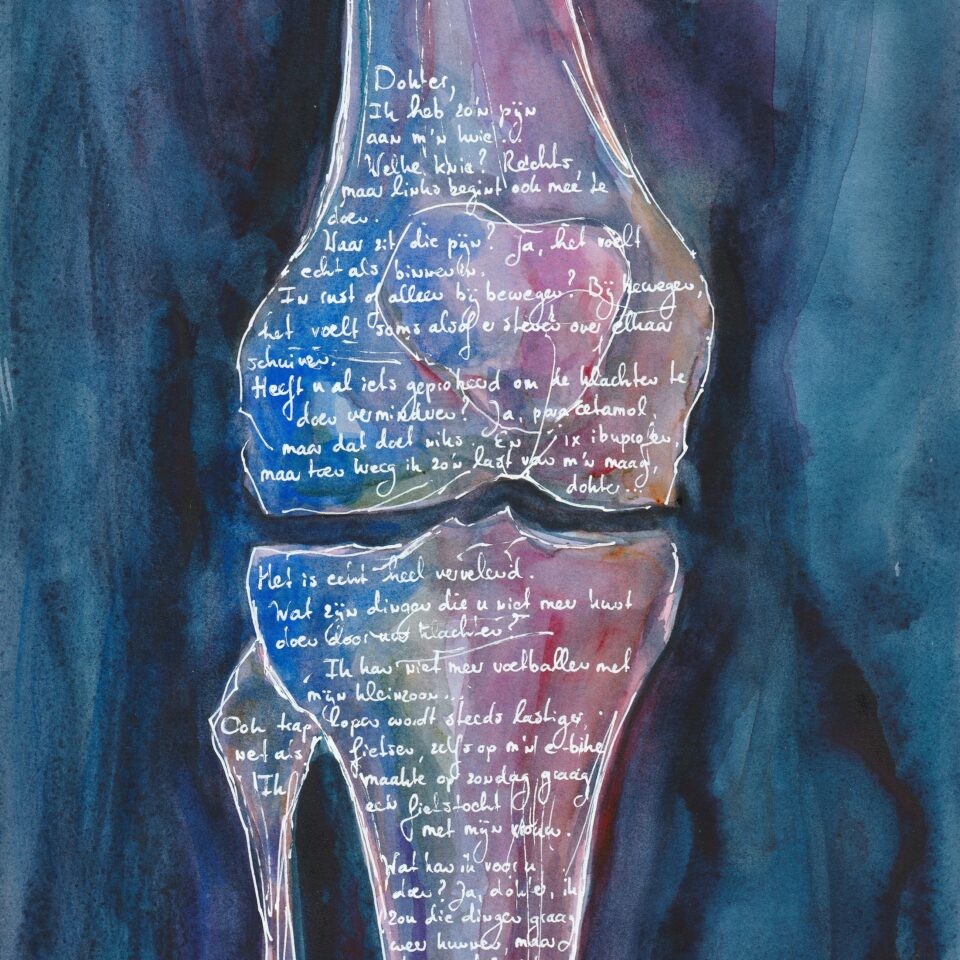 Dokter,
Ik heb zo'n pijn
aan m'n knie...
Welke knie? Rechts,
maar links begint ook mee te
doen.
Waar zit die pijn? Ja, het voelt
echt als binnenin.
In rust of alleen bij bewegen? Bij bewegen,
het voelt soms alsof er stenen over elkaar
schuiven.
Heeft u al iets geprobeerd om de klachten te
doen verminderen? Ja, paracetamol,
maar dat doet niks. En 1x ibuprofen,
maar toen kreeg ik zo'n last van m'n maag,
dokter...
Het is echt heel vervelend.
Wat zijn dingen die u niet meer kunt
doen door uw klachten?
Ik kan niet meer voetballen met
mijn kleinzoon...
Ook trap lopen wordt steeds lastiger,
net als fietsen, zelfs op m'n e-bike
Ik maakte op zondag graag
een fietstocht
met mijn vrouw.
Wat kan ik voor u
doen? Ja, dokter, ik
zou die dingen graag
weer kunnen, maar